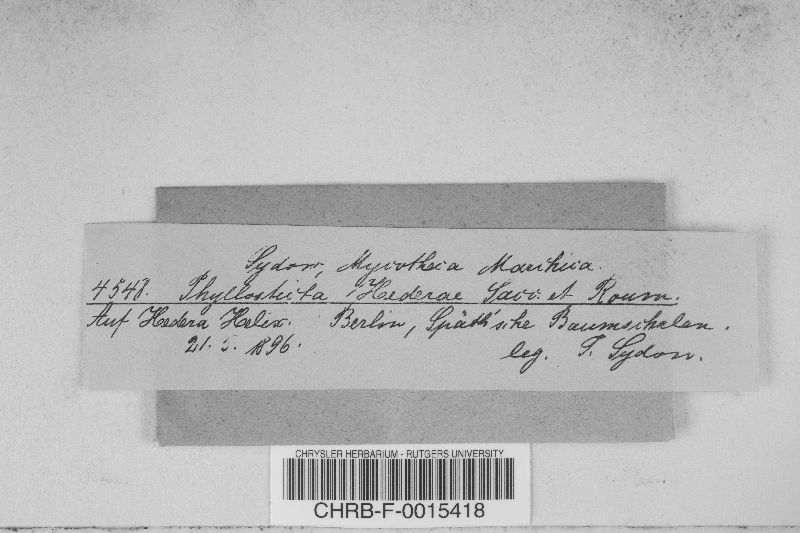 Sydow, Mycotheca Marchica.
4548. Phyllosticta Hederae Sacc. et Roum.
Auf Hedera Helix. Berlin, Späth'sche Baumschulen.
21. 5. 1896. leg. P. Sydow.
CHRYSLER HERBARIUM - RUTGERS UNIVERSITY
CHRB-F-0015418